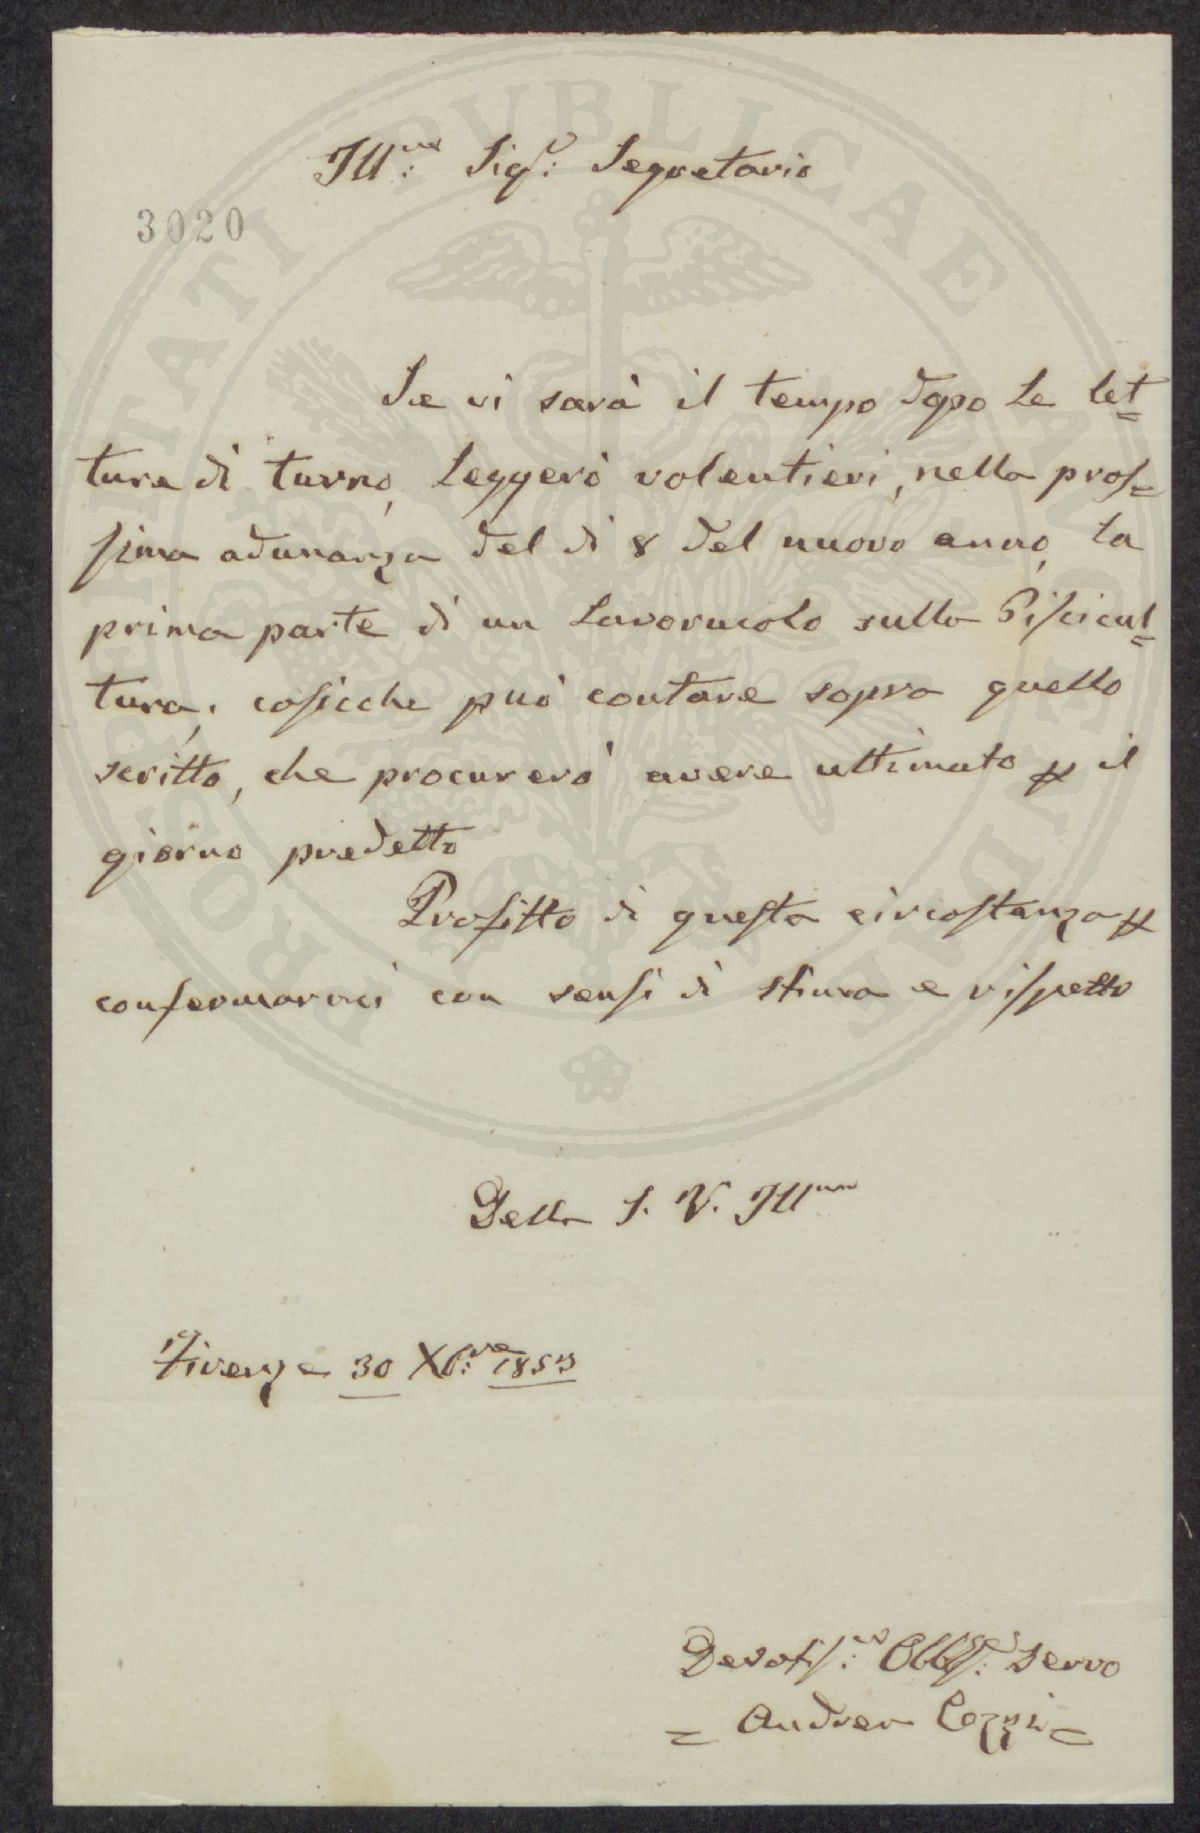 Ill:mo Sigr: Segretario
3020
Se vi sarà il tempo dopo le let=
ture di turno, leggerò volentieri, nella pros=
sima adunanza del dì 8 del nuovo anno, la
prima parte di un lavorucolo sulla Piscicul=
tura, cosicche può contare sopra quello
scritto, che procurerò avere ultimato p il
giorno predetto
Profitto di questa circostanza p
confermarmi con sensi di stima e rispetto
Della S. V. Illma
Firenze 30 Xb:re 1853
Devotiss:mo Obblgmo: servo
= Andrea Cozzi =
PROSPERITATI PVBLICAE AVGENDAE